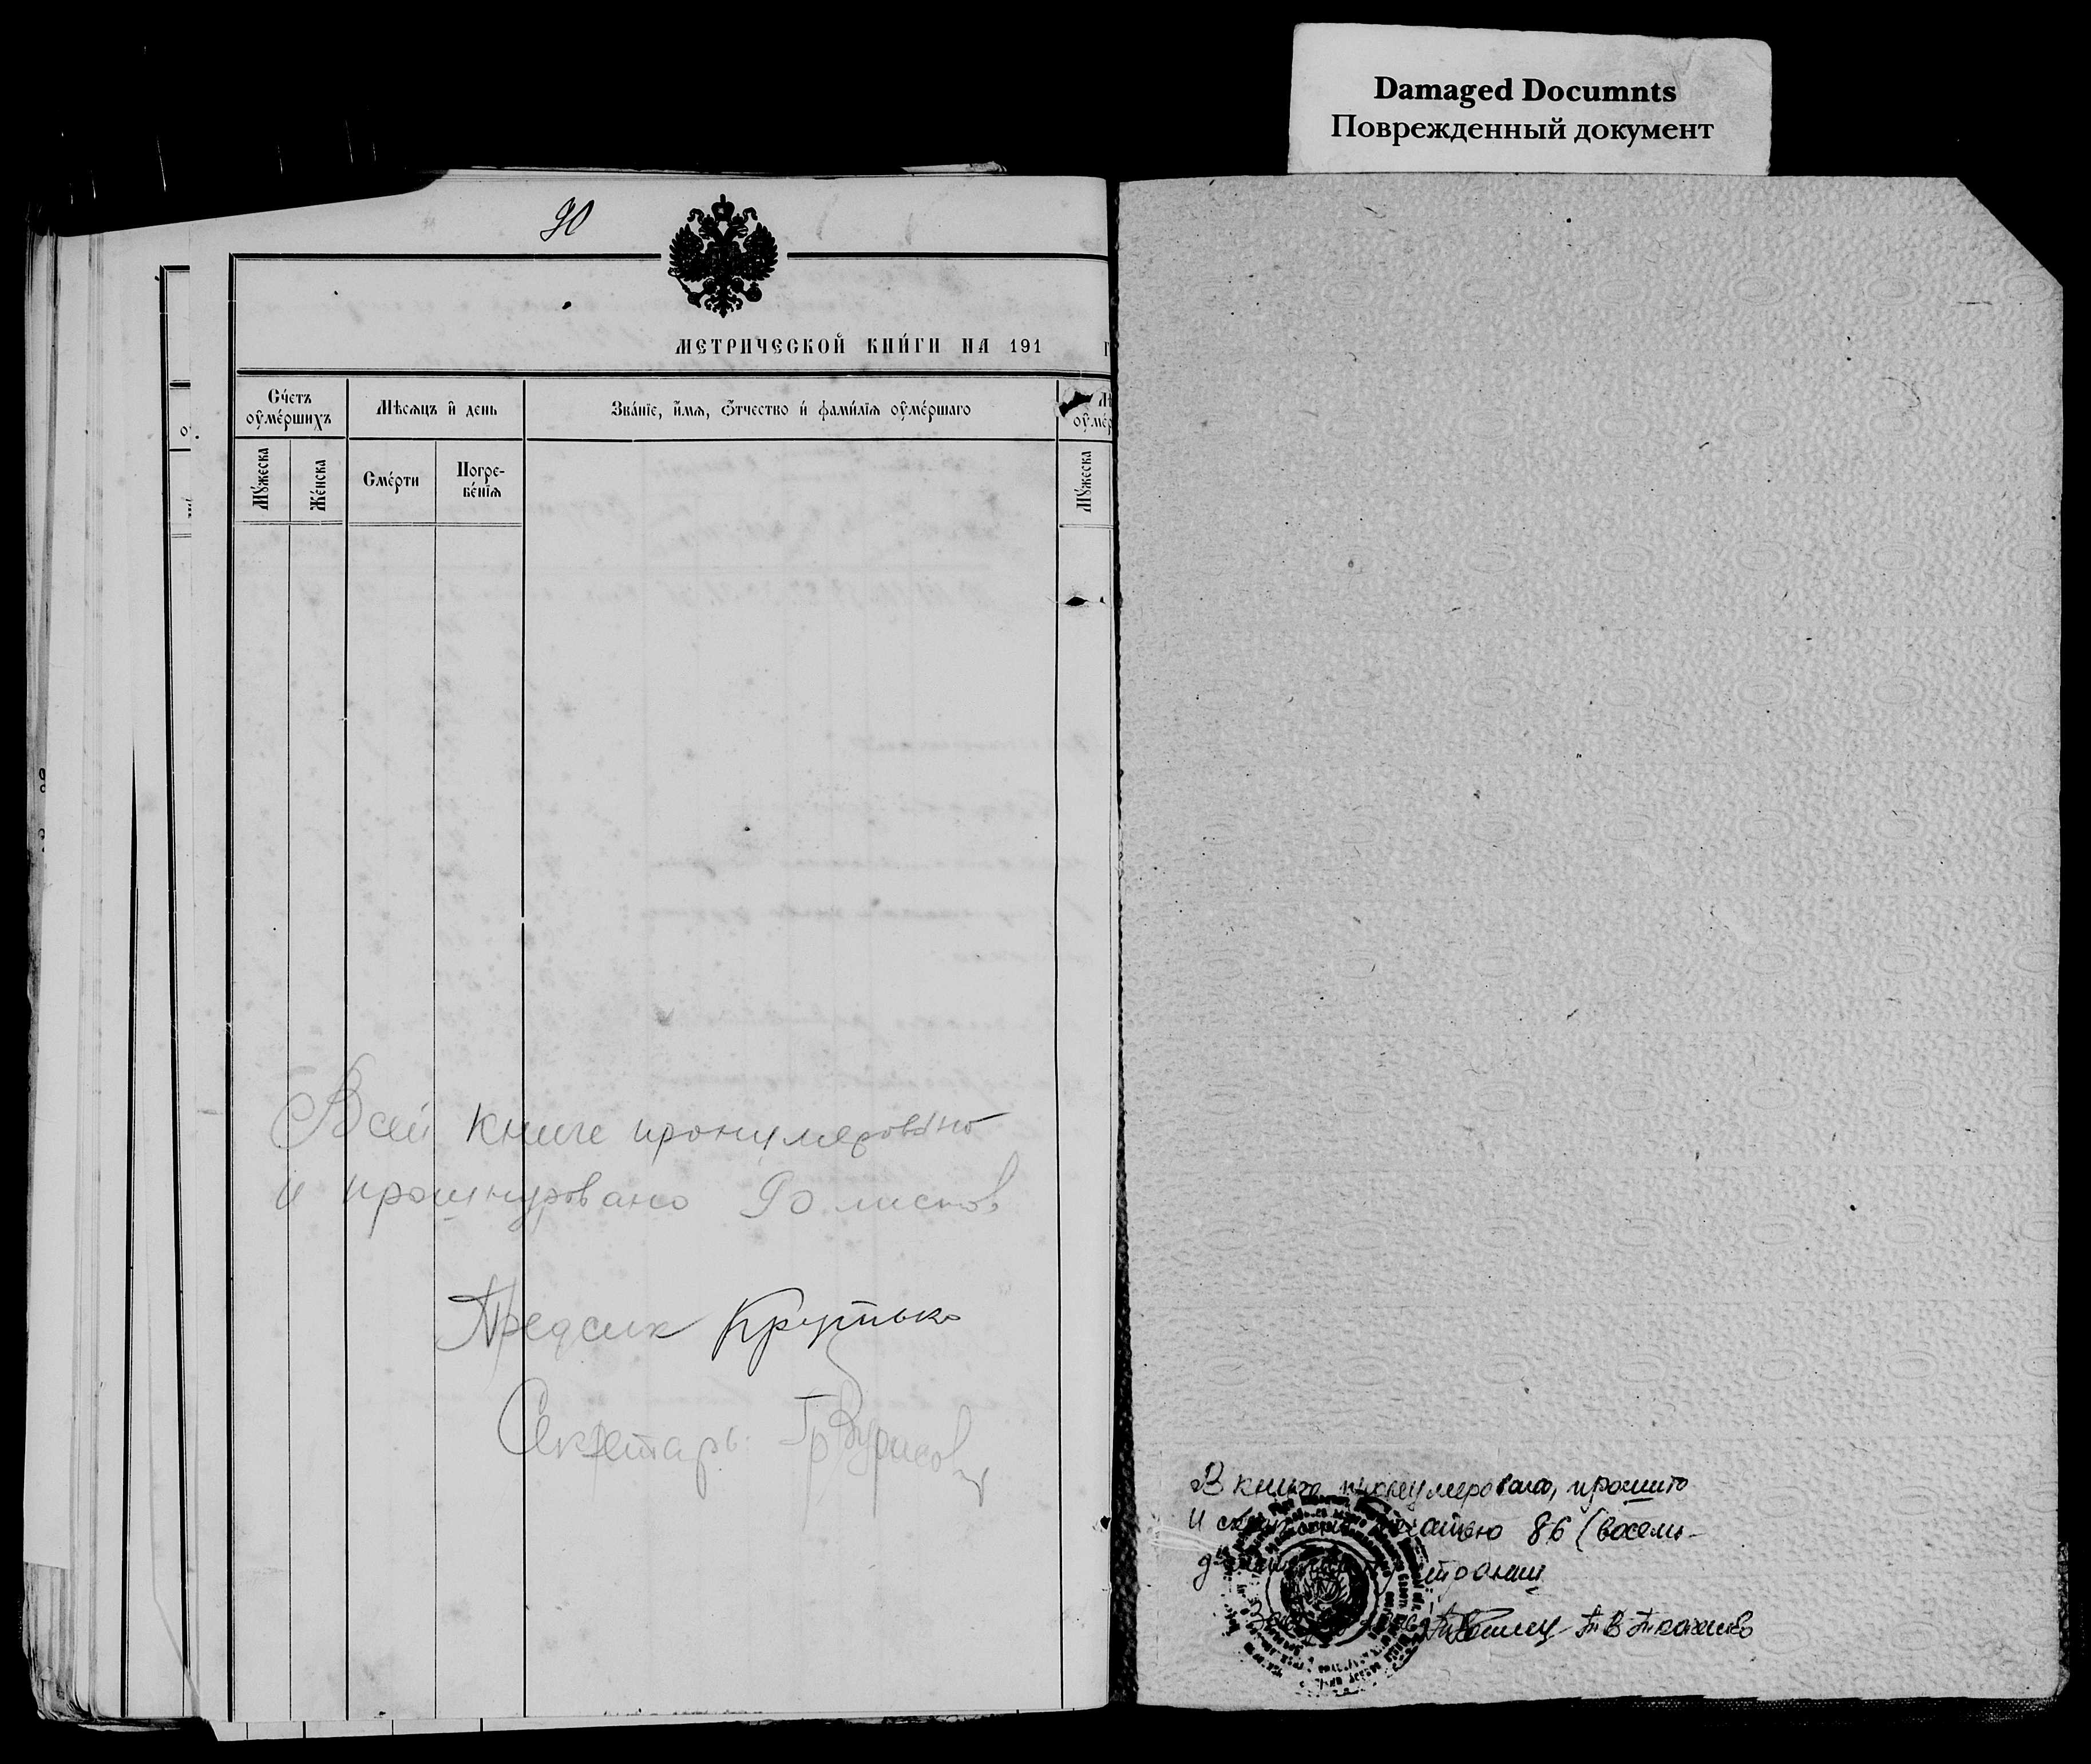 Damaged Documnts
Поврежденный документ
90
МЕТРИ́ЧЕСКОЙ КНИ́ГИ НА 191
Сче́тъ оумершихъ
Мѣсяцъ и день
Зва́нїе, и҆́мѧ, ѻ҆́тчество и҆ фами́лїѧ оу҆ме́ршаго
Мꙋ́жеска
Же́нска
Сме́рти
Погребе́нїѧ
Мꙋ́жеска
Всей книге пронумеровано
и прошнуровано 90 листов
Предсик Крутько
Секретарь
В книге пронумеровано, прошито
и скреплено печатью 86 (восемь-
страниц